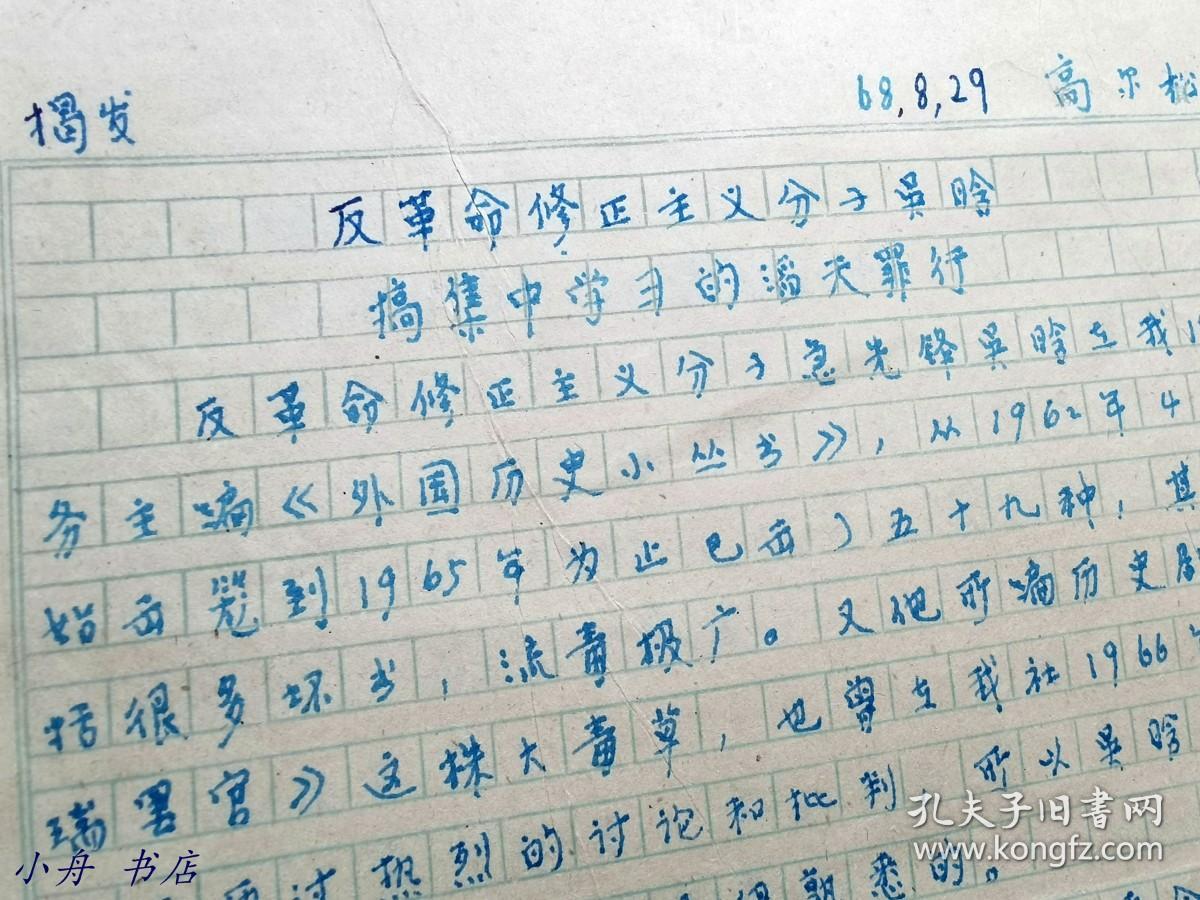 揭发
68,8,29 高尔松
反革命修正主义分子吴晗
搞集中学习的滔天罪行
反革命修正主义分子急先锋吴晗在我
务主编《外国历史小丛书》,从1962年4
始出笼到1965年为止已出了五十九种,其
括很多坏书,流毒极广。又他所编历史剧
瑞罢官》这株大毒草,也曾在我社1966
讨热烈的讨论和批判 所以吴晗
熟悉的。
孔夫子旧书网
www.kongfz.com
小舟 书店